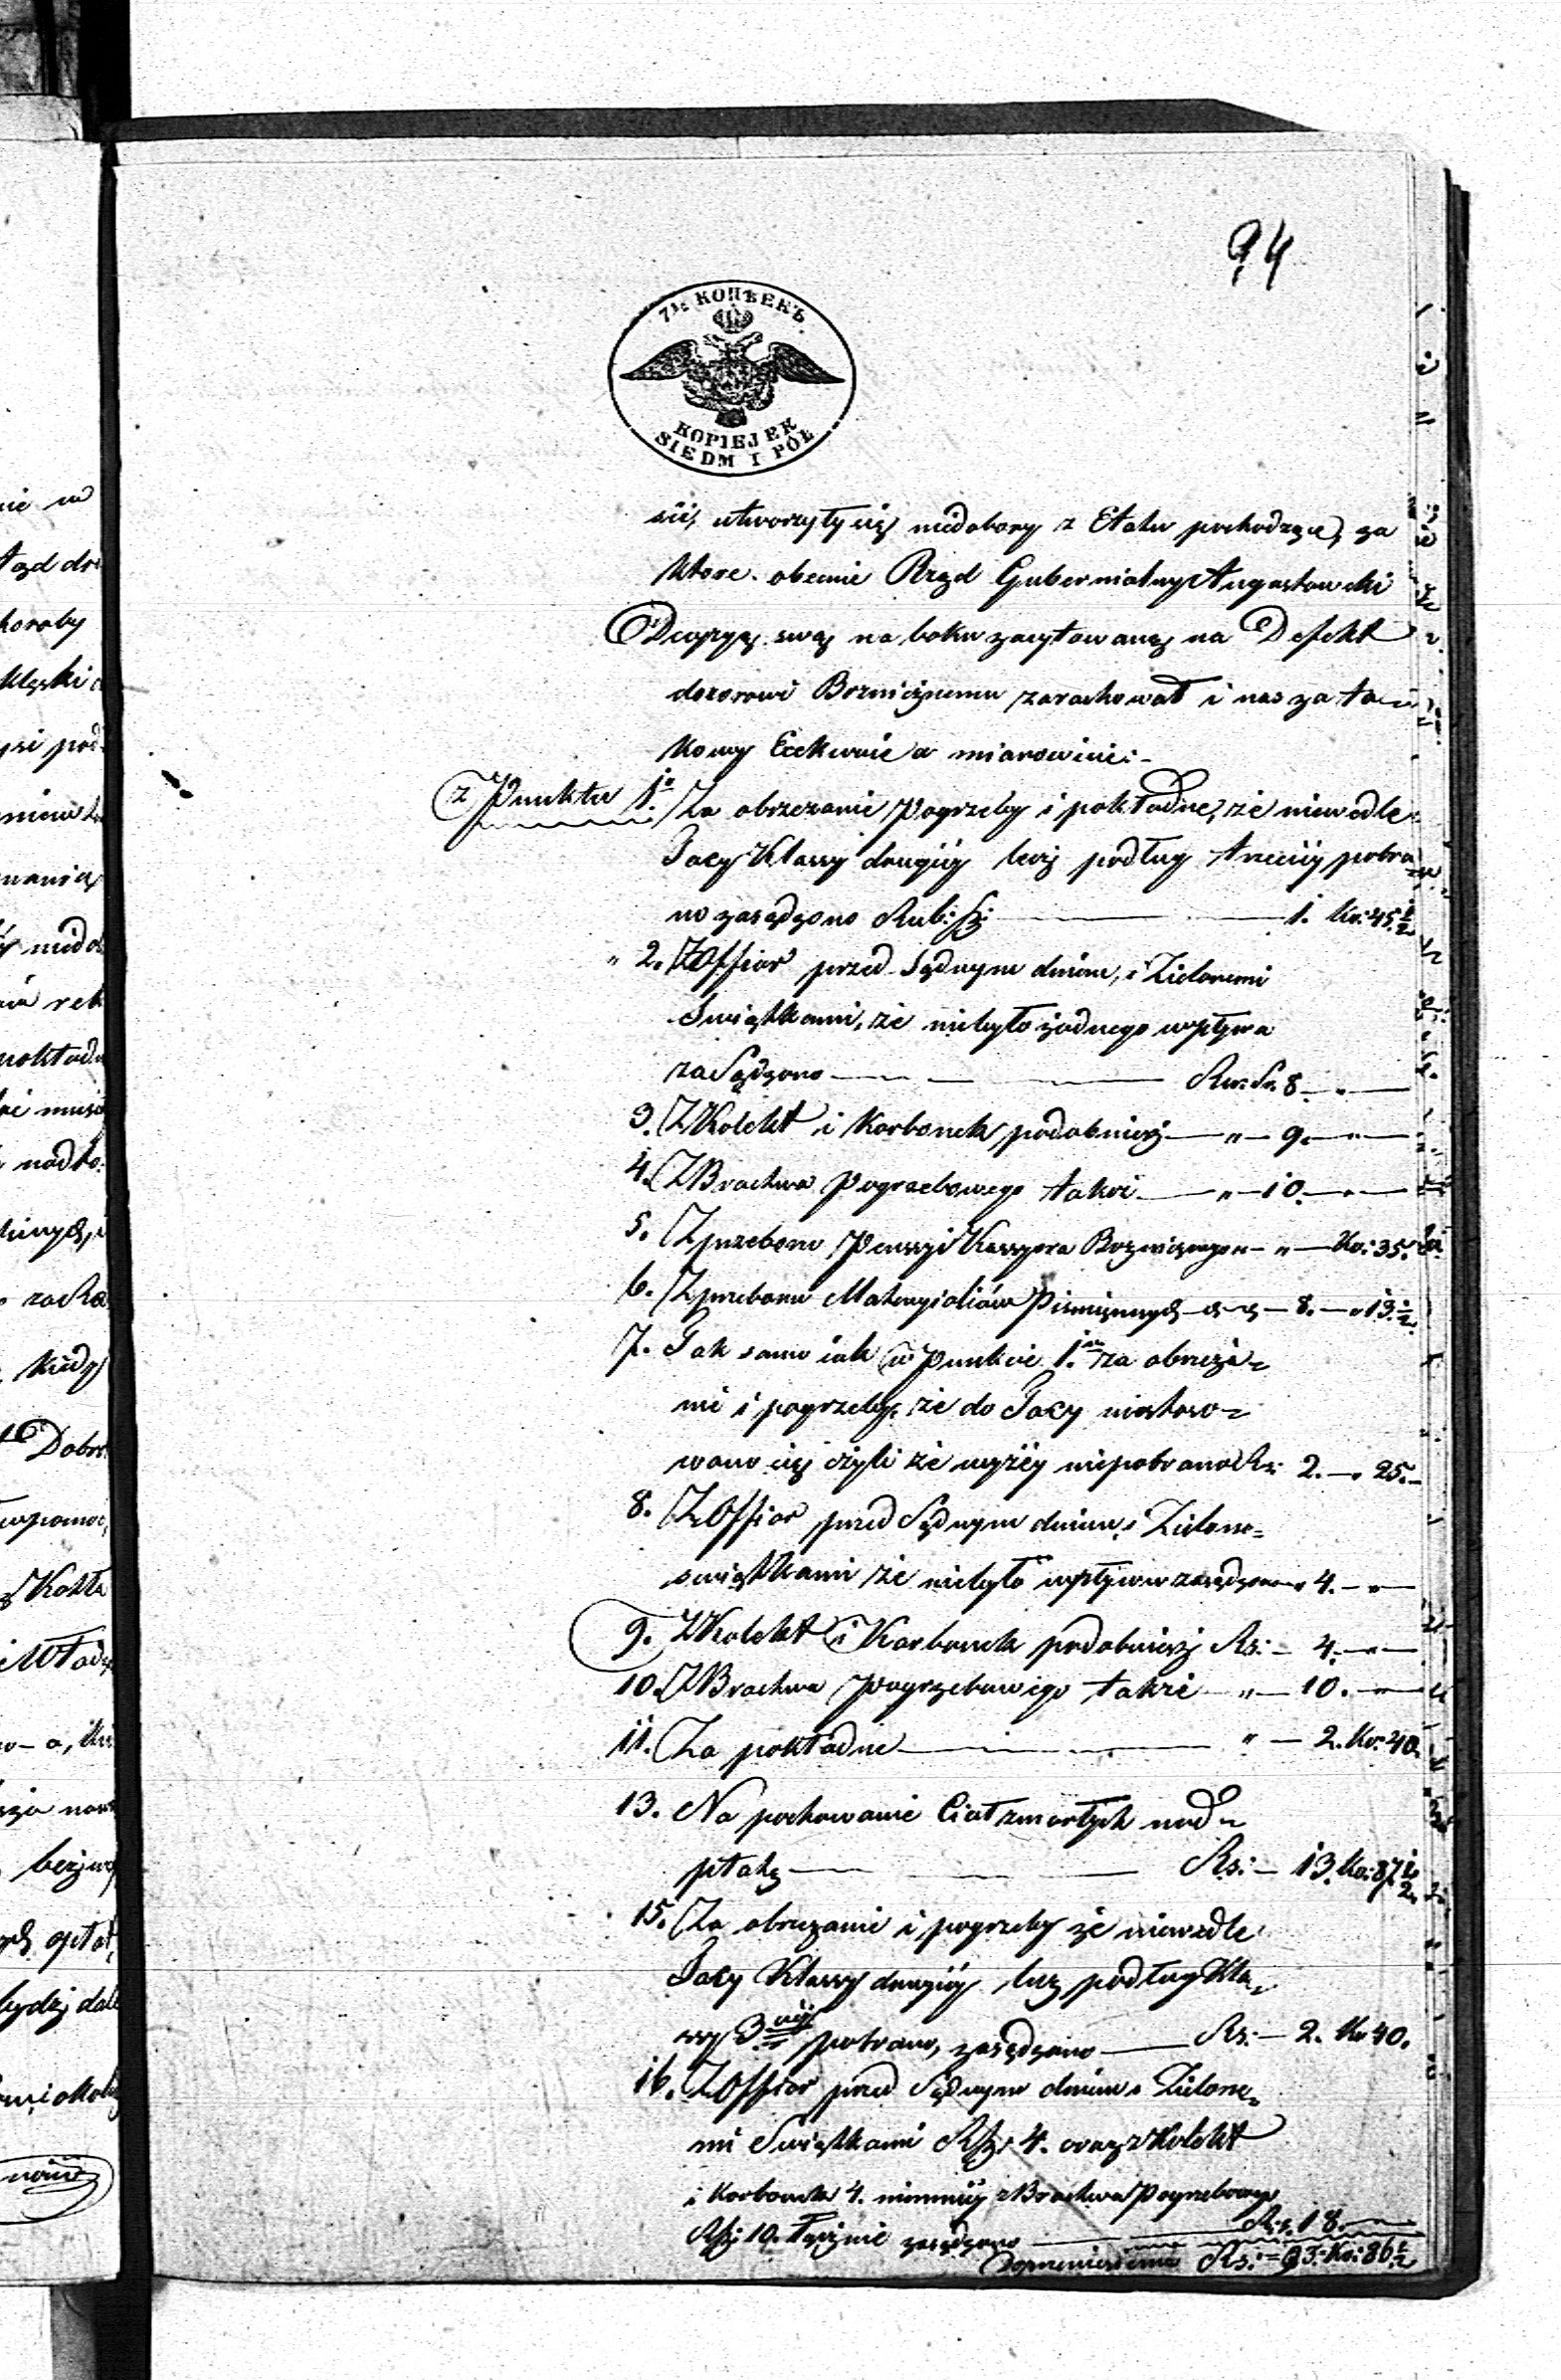 94
7½ КОПѢЕКЪ
KOPIEJEK
SIEDM I PÓŁ
sii, utworzyły się niedobory z Etatu pochodzące, za
które obecnie Rząd Gubernialny Augustowski
Decyzyą swą na boku zacytowaną na Defekt
dozorowi Bozniczemu zarachował i nas za ta-
kowy Exekwuie a mianowicie:-
z Punktu 1o Za obrzezanie Pogrzeby i pokładne, że niewedle
Taxy Klassy drugiéy lecz podług trzeciéy pobra-
no zasądzono Rub: Sr: 1. Ko: 45½
" 2. Z Offiar przed Sądnym dniem, i Zielonemi
Swiątkami, że niebyło żadnego wpływu
zasądzono Ru: Sr. 8 "
3. Z Kolekt i Karbonek podobnież " 9. "
4. Z Bractwa Pogrzebowego także " 10. "
5. Z przeboru Penssyi Kassyera Boznicznego " " Ko: 35.
6. Z przeboru Materyiałów Piśmiennych " " 8. " 13½
7. Tak samo iak w Punkcie 1m za obrzeza-
nie i pogrzeby, że do Taxy niestoso-
wano się czyli że wyżéy niepobrano Rs: 2. " 25.
8. Z Offiar przed Sądnym dniem i Zielono-
swiątkami że niebyło wpływu zasądzono " 4. "
9. Z Kolekt i Karbonek podobnież Rs: 4. "
10. Z Bractwa Pogrzebowego także " 10. "
11. Za pokładne " 2. Ko: 40
13. Na pochowanie Ciał zmarłych nad-
płatę Rs: 13. Ko: 87½
15. Za obrzezanie i pogrzeby że niewedle
Taxy Klassy drugiéy lecz podług Kla-
ssy 3ciéy pobrano, zasądzono Rs: 2. Ko 40.
16. Z Offiar przed Sądnym dniem i Zielone-
mi Swiątkami RSr: 4. oraz z Kolekt
i Karbonek 4. niemniéy z Bractwa Pogrzebowego
RSr: 10. łącznie zasądzono Rs. 18.
Do przeniesienia Rs: 93. Ko: 86½